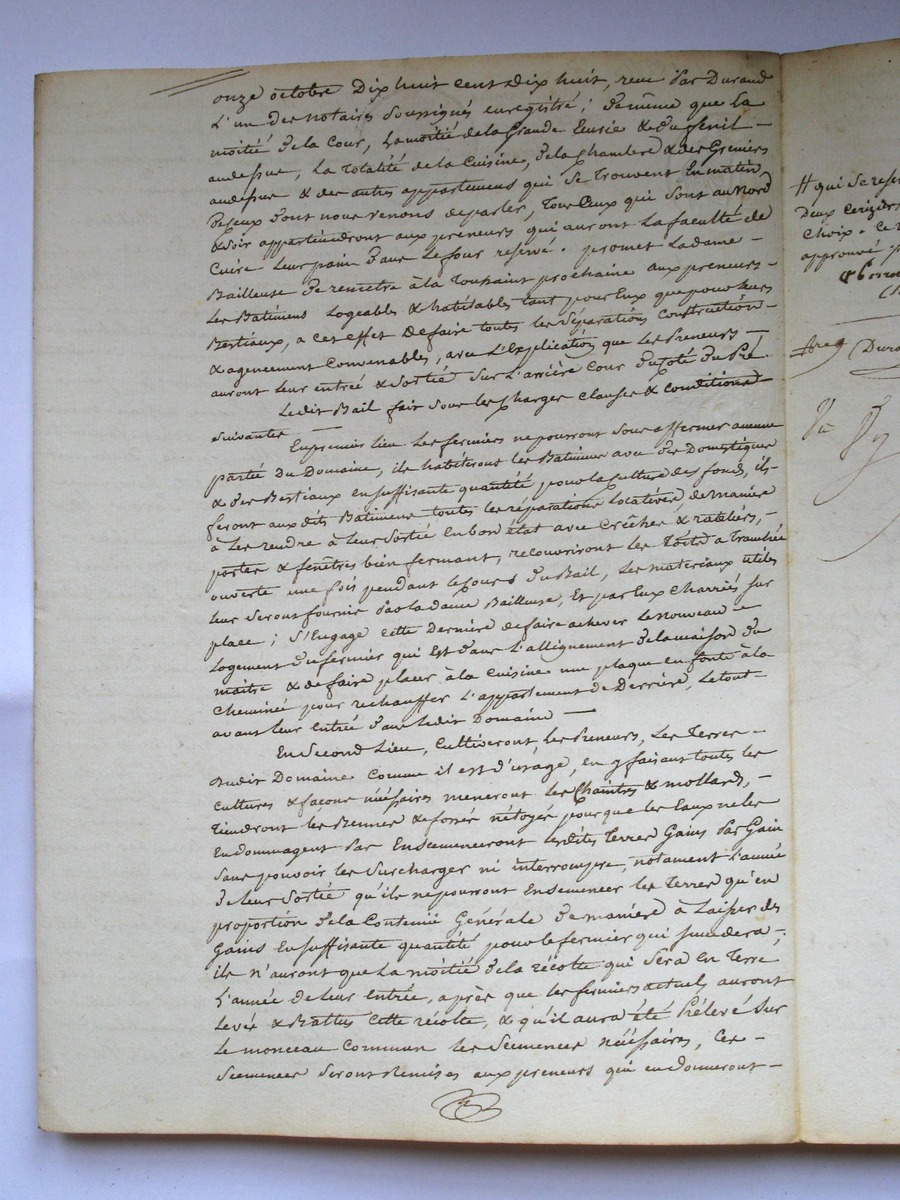 onze octobre Dix huit cent dix huit, reçu Par Durand
L'un des notaires Soussignés enregistré; de même que la
moitié de la Cour, La moitié de la Grande Ecurie & du fenil —
au dessus, la Totalité de la Cuisine, de la Chambre & des Greniers
au dessus & des autres appartemens qui se Trouvent En matin
De ceux dont nous venons de parler, Tous Ceux qui sont au Nord
& soir appartiendront aux preneurs qui auront La faculté de
Cuire leur pain dans Le four réservé. promet La dame —
Bailleuse de remettre à la Toussaint prochaine aux preneurs —
Les Batimens Logeables & habitables tant pour Eux que pour leurs
Bestiaux, a cet effet De faire toutes les Séparations Construction —
& agencement Convenables, avec L'Explication que Les Preneurs —
auront leur entrée & Sortie Sur L'arrière Cour du Coté du Pré.
Le dit Bail fait sous les Charges Clauses & conditions —
suivantes —
En premier lieu Les fermiers ne pourront Sous affermer aucune
partie du Domaine, ils habiteront les Batimens avec des Domestiques
& des Bestiaux en suffisante quantité pour la Culture des fonds, ils
feront aux dits Batimens toutes les réparations locatives de manière
à Les rendre à Leur Sortie En bon état avec Crèches & rateliers, —
portes & fenêtres bien fermant, recouvriront les Toits a Tranchée
ouverte une fois pendant le Cours du Bail, Les materiaux utiles
leur Seront fournis par la dame Bailleuse, Et par Eux Charriés sur
place; S'Engage cette Dernière de faire achever Le nouveau —
Logement du fermier qui Est dans L'allignement de la maison du
maitre & de faire placer à la Cuisine une plaque en fonte à la
Cheminée pour rechauffer L'appartement de Derrière, Le tout —
avant leur entrée dans Le dit Domaine —
En Second Lieu, Cultiveront les Preneurs, Les Terres —
Du dit Domaine Comme il est d'usage, en y faisant toutes les
Cultures & façons nécessaires meneront les Chaintres & mollards, —
Tiendront les & fossés nétoyés pour que les Eaux ne les
Endommagent pas Ensemenceront les dites Terres Gains Par Gain
Sans pouvoir les Surcharger ni interrompre, notament L'année
de leur Sortie qu'ils ne pourront Ensemencer les Terres qu'en
proportion de la Contenue Générale de manière à Laisser des
Gains En suffisante quantité pour le fermier qui succedera;
ils n'auront que La moitié de la récolte qui Sera En Terre
L'année de leur Entrée, après que les fermiers actuels auront
Levés & Battus Cette récolte, & qu'il aura été Prélevé Sur
Le monceau Commun les Semences nécessaires, Ces —
Semences Seront Remises aux preneurs qui en donneront —
# qui se rese
Deux Cerisiers
choix. Ce
approuvé
Dura